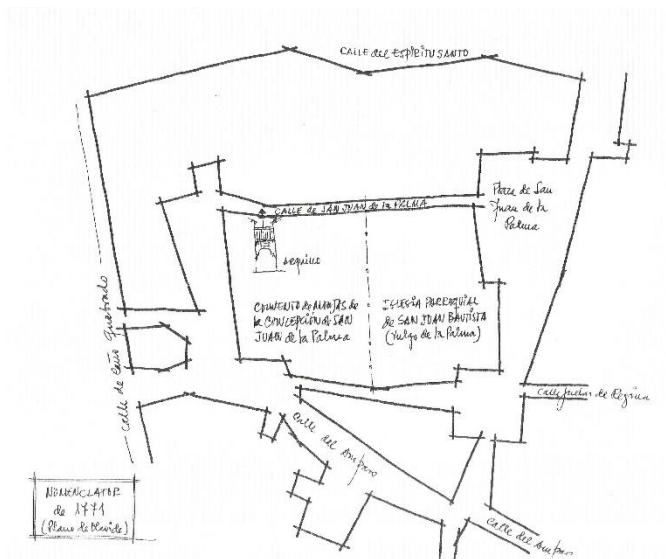 CALLE del ESPIRITU SANTO
CALLE de SAN JUAN de la PALMA
Plaza de San
Juan de la
Palma
CONVENTO de MONJAS de
la CONCEPCIÓN de SAN
JUAN de la Palma
IGLESIA PARROQUIAL
de SAN JUAN BAUTISTA
(vulgo de la Palma)
Calle de Caño Quebrado
Calle del Amparo
de Regina
Calle del Amparo
NOMENCLATOR
de 1771
(Plano de Olavide)